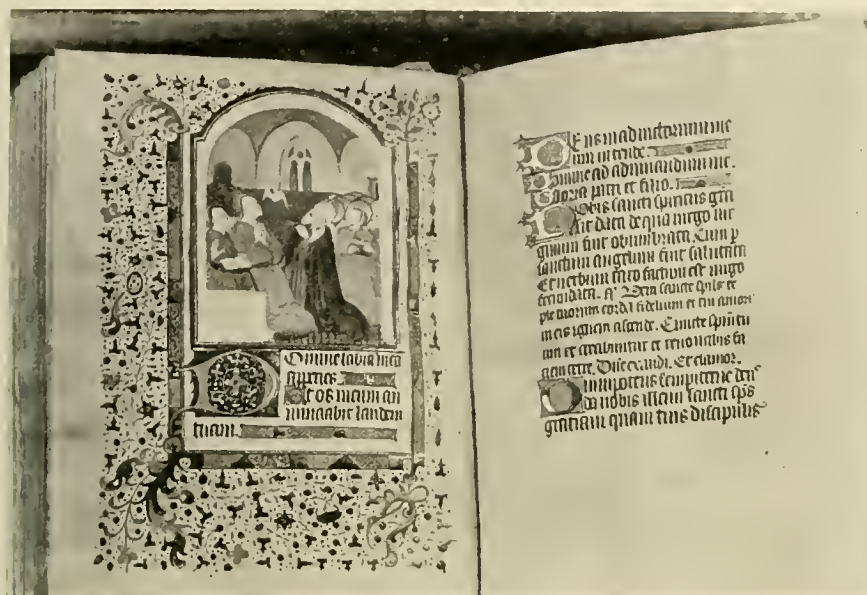 Omine labia mea
aperies
Et os meum an
nunciabit laudem
tuam.
Eus in adiutorium me
um intende.
Domine ad adiuuandum me.
Gloria patri et filio.
Obis sancti spiritus gra
data de qua virgo
fuit obumbrata. Cum p
sanctum angelum fuit salutata
Et verbum caro factum est virgo
fecundata. Veni sancte spūs re
ple tuorum corda fidelium et tui amoris
in eis ignem ascende. Emitte spm tu
um et creabuntur et renouabis fa
ciem terre. Dñe exaudi. Et clamor.
Omnipotens sempiterne deus
da nobis illam sancti spūs
gratiam quam tuis discipulis